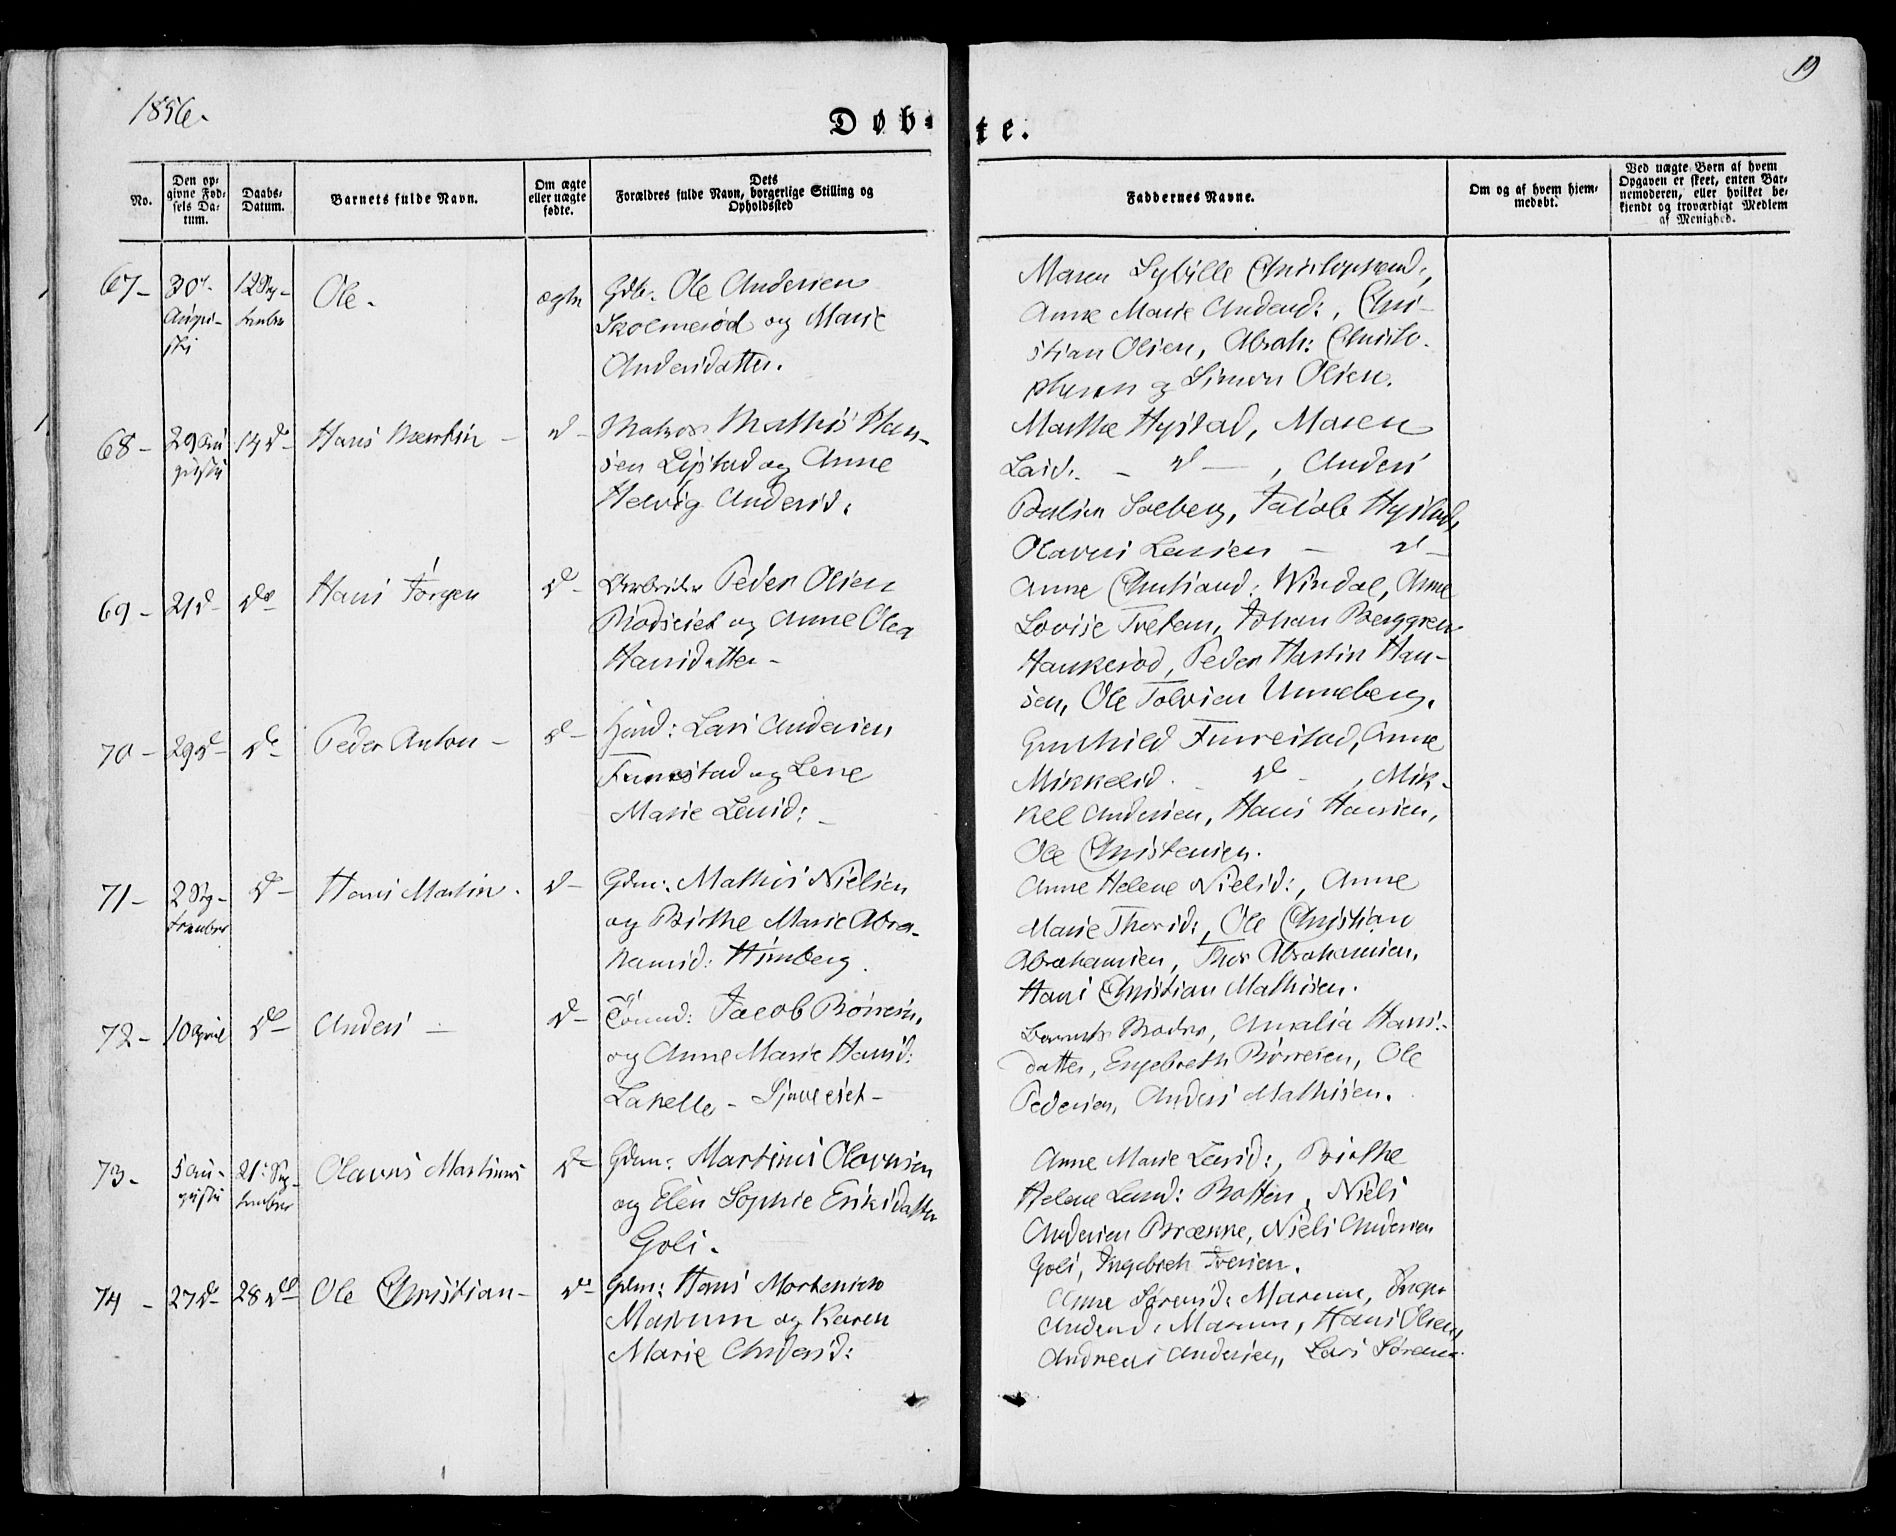 1856.
19
Døb-
te.
No.
Den op-
givne Fød-
sels Da-
tum.
Daabs-
Datum.
Barnets fulde Navn.
Om ægte
eller uægte
fødte.
Dets
Forældres fulde Navn, borgerlige Stilling og
Opholdssted
Faddernes Navne.
Om og af hvem hjem-
medøbt.
Ved uægte Børn af hvem
Opgaven er skeet, enten Bar-
nemoderen, eller hvilket be-
kjendt og troværdigt Medlem
af Menighed.
67-
30
Augu-
sti
12 Sep-
tember
Ole.
ægte
Gdb: Ole Andersen
Skolmerød og Marie
Andersdatter.
Maren Sybille Christophersd:,
Anne Marie Andersd:, Chri-
stian Olsen, Abrah: Christo-
phersen og Simon Olsen.
68-
29 Au
gusti
14 d-
Hans Martin -
d-
Matros Mathis Han-
sen Lystad og Anne
Helvig Andersd:
Marthe Hystad, Maren
Larsd. - d -, Anders
Solberg, Jacob Hystad,
Olavus Larsen - d -
69-
21 d-
do
Hans Jørgen
d-
Peder Olsen
Rødseiet og Anne Olea
Hansdatter-
Anne Christiansd: Windal, Anne
Lovise Tvetan, Johan Berggren
Haukerød, Peder Martin Han-
sen, Ole Tolvsen Unneberg.
70-
29 d-
do
Peder Anton -
d-
Hmd: Lars Andersen
Furrestad og Lene
Marie Larsd: -
Gunhild Furrestad, Anne
Mikkelsd. do -, Mik-
kel Andersen, Hans Hansen,
Ole Christensen.
71-
2 Sep-
tember
d-
Hans Martin.
d-
Gdm: Mathis Nielsen
og Birthe Marie Abra-
hamsd: Himberg.
Anne Helene Nielsd:, Anne
Marie Thorsd:, Ole Christian
Abrahamsen, Thor Abrahamsen,
Hans Christian Mathisen.
72-
10 April
do-
Anders -
d-
Tømmd: Jacob Børresen,
og Anne Marie Hansd:
Lakelle -
Barnets Moder, Amalia Hans-
datter, Engebreth Børresen, Ole
Pedersen, Anders Mathisen.
73-
5 Au-
gusti
21: Sep-
tember
Olavus Martinus
d-
Gdm: Martinus Olavesen
og Elen Sophie Eriksdatter
Goli.
Anne Marie Larsd:, Birthe
Helene Larsd: Botten, Niels
Andersen Brænne, Niels Andersen
Goli, Ingebreth Iversen.
74-
27 d-
28 do
Ole Christian-
d-
Gdm: Hans Mortensen
Marum og Karen
Marie Andersd:
Anne Sørensd: Marum, Inger
Andersd: Marum, Hans Olsen,
Andreas Andersen, Lars Sørensen.